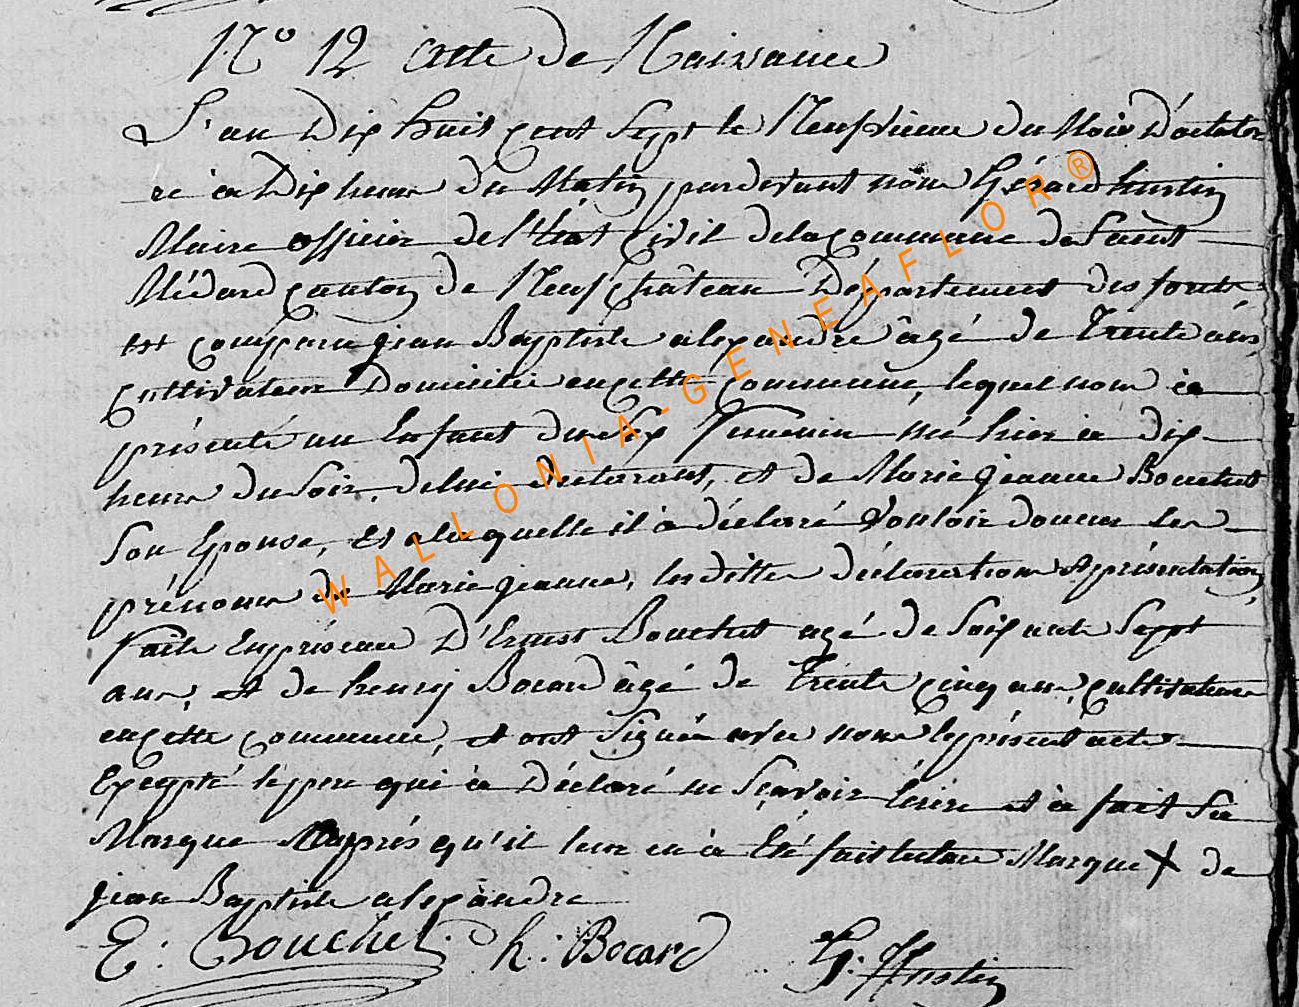 N° 12 acte de Naissance
L'an Dix huit cent Sept le Neufvieme du Mois D'octob
re à Dix heure du Matin pardevant nous Gérard hustin
Maire officier de l'état Civil de la Commune de Saint
Médard Canton de Neufchâteau Département des forêts
est comparu jean Baptiste alexandre âgé de Trente ans,
Cultivateur Domicilié en cette Commune, lequel nous à
présenté un Enfant du Sex Femenin né hier à dix
heure du Soir, de lui declarant, et de Marie jeanne Bouchet
Son Epouse, et alaquelle il à déclaré Vouloir donner les
prénoms de Marie jeanne, les dittes déclaration & présentation,
faite En présence D'Ernest Bouchet agé de Soixante Sept
ans, et de henry Bocard âgé de Trente cinq ans, Cultivateur
en cette Commune, et ont Signée avec nous le présent acte
Excepté le pere qui à Déclaré ne Sçavoir écrire et à fait Sa
Marque après qu'il leur en à Eté fait lecture Marque X de
jean Baptiste alexandre
E: Bouchet h: Bocard G: Hustin
WALLONIA-GENEAFLOR®